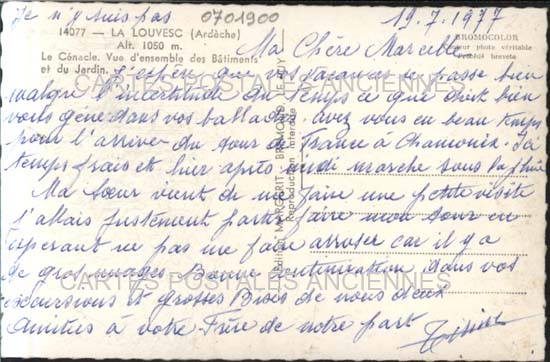 Je n'y suis pas
0701900
19.7.1977
14077 — LA LOUVESC (Ardèche)
Alt. 1050 m.
Le Cénacle. Vue d'ensemble des Bâtiments
et du Jardin.
BROMOCOLOR
photo véritable
Ma Chère Marcelle
J'espère que vos vacances se passe bien
malgré l'incertitude du temps ce que doit bien
vous gêné dans vos ballades. avez vous eu beau temps
pour l'arrivée du tour de France à Chamonix. Ici
temps frais et hier après midi marche sous la pluie
Ma Sœur vient de me faire une petite visite
j'allais justement partir faire mon tour en
esperant ne pas me faire arroser car il y a
de gros nuages Bonne continuation dans vos
excursions et grosses Bises de nous deux
Amitiés à votre Frère de notre part
MARGERIT - BROMOCOLOR
Reproduction interdite
CARTES POSTALES ANCIENNES
CARTES POSTALES ANCIENNES